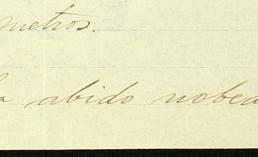 metros.
abido nobea